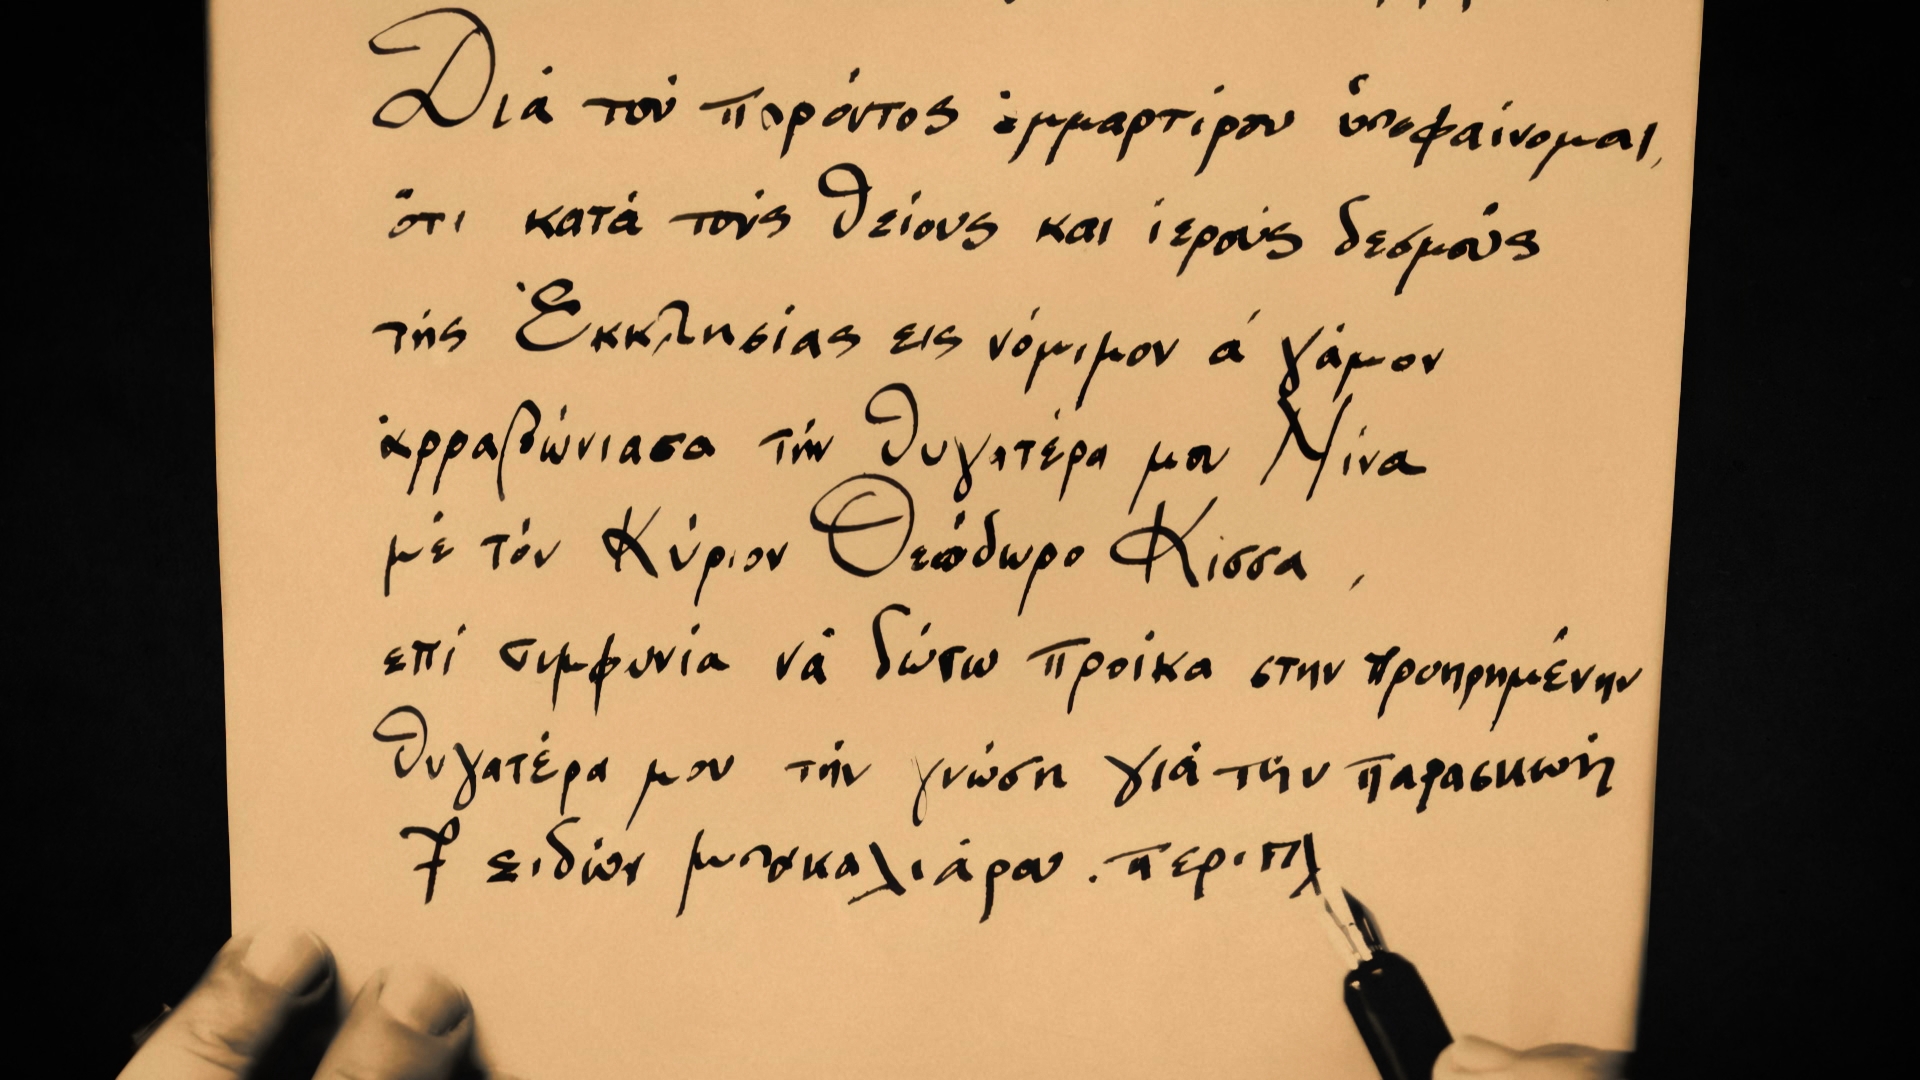 Διά του παρόντος ἐμμαρτύρου ὑποφαίνομαι,
ότι κατά τούς θείους και ιερούς δεσμούς
τής Ἐκκλησίας εις νόμιμον ά γάμον
ἀρραβώνιασα τήν θυγατέρα μου Νίνα
μέ τόν Κύριον Θεόδωρο Κίσσα,
επί συμφωνία νά δώσω προίκα στην προηρημένην
θυγατέρα μου τήν γνώση γιά την παρασκευή
7 ειδών μπακαλιάρου. περιπλ